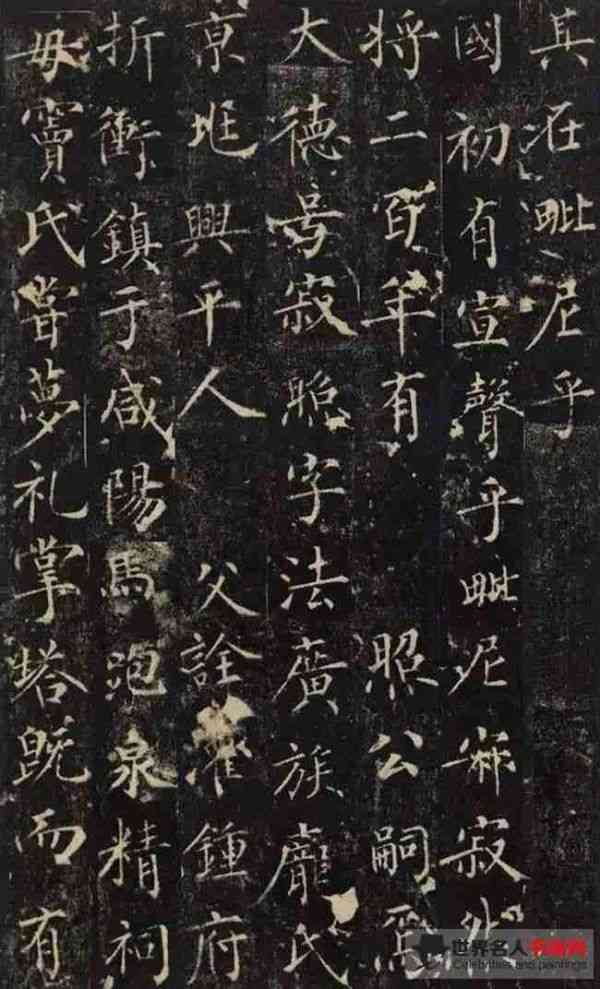 其在毗尼乎
國初有宣聲乎毗尼寂外
將二百年有 照公嗣焉
大德号寂照字法廣族龐氏
京兆興平人 父詮灌鍾府
折衝鎮于咸陽馬跑泉精祠
母竇氏嘗夢礼掌塔既而有
世界名人书画网
Celebrities and paintings